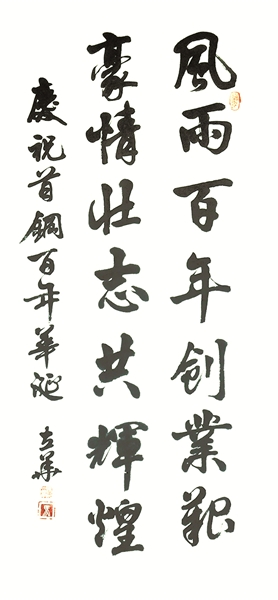 風雨百年創業艱
豪情壯志共輝煌
慶祝首鋼百年華誕